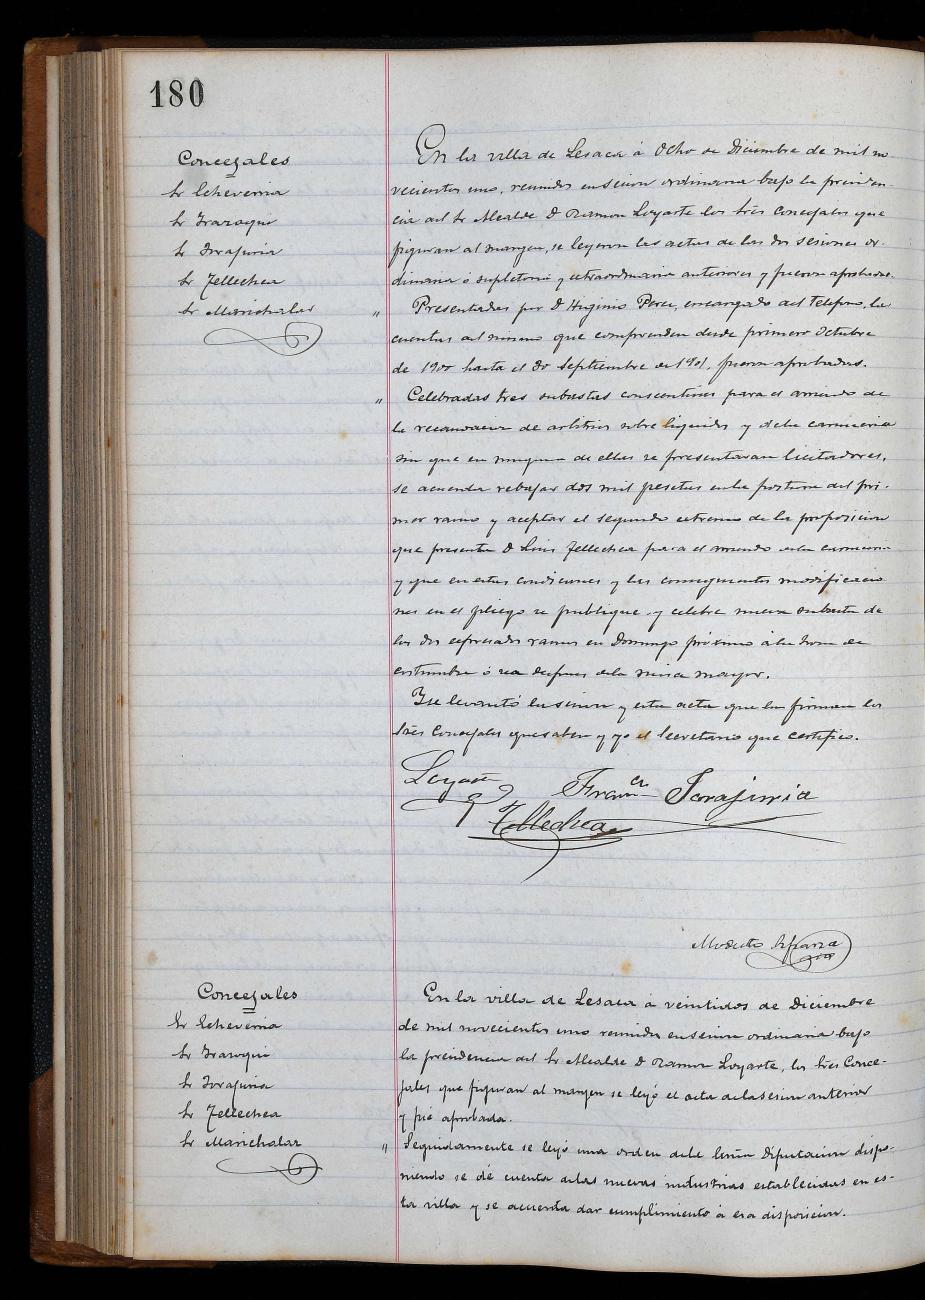 180
Concejales
Sr Echeverria
Sr Irazoqui
Sr Jorajuria
Sr Tellechea
Sr Marichalar
En la villa de Lesaca á Ocho de Diciembre de mil no-
vecientos uno, reunidos en sesion ordinaria bajo la presiden-
cia del Sr Alcalde D Ramon Loyarte los Sres Concejales que
figuran al margen, se leyeron las actas de las dos sesiones or-
dinaria ó supletoria y extraordinaria anteriores y fueron aprobadas.
" Presentadas por D Higinio Perez, encargado del telefono, las
cuentas del mismo que comprenden desde primero Octubre
de 1900 hasta el 30 Septiembre de 1901, fueron aprobadas.
" Celebradas tres subastas consecutivas para el arriendo de
la recaudacion de arbitrios sobre liquidos y dela carniceria
sin que en ninguna de ellas se presentaran licitadores,
se acuerda rebajar dos mil pesetas enla postura del pri-
mer ramo y aceptar el segundo extremo de la proposicion
que presenta D Luis Tellechea para el arriendo dela carniceria
y que en estas condiciones y las consiguientes modificacio
nes en el pliego se publique y celebre nueva subasta de
los dos expresados ramos en Domingo próximo á la hora de
costumbre ó sea despues dela misa mayor.
Y se levantó la sesion y esta acta que la firman los
Sres Concejales que saben y yo el Secretario que certifico.
Loyarte
Franco Jorajuria
Tellechea
Modesto
Concejales
Sr Echeverria
Sr Irazoqui
Sr Jorajuria
Sr Tellechea
Sr Marichalar
En la villa de Lesaca á veintidos de Diciembre
de mil novecientos uno reunidos en sesion ordinaria bajo
la presidencia del Sr Alcalde D Ramon Loyarte, los Sres Conce-
jales que figuran al margen se leyó el acta dela sesion anterior
y fué aprobada.
" Seguidamente se leyó una orden dela Excma Diputacion dispo-
niendo se dé cuenta delas nuevas industrias establecidas en es-
ta villa y se acuerda dar cumplimiento á esa disposicion.